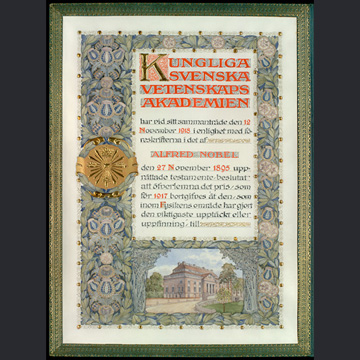 KUNGLIGA
SVENSKA
VETENSKAPS
AKADEMIEN
har vid sitt sammanträde den 12
November 1918 i enlighet med fö-
reskrifterna i det af
ALFRED NOBEL
den 27 November 1895 upp-
rättade testamente beslutat
att öfverlemna det pris, som
för 1917 bortgifves åt den, som
inom Fysikens område har gjort
den viktigaste upptäckt eller
uppfinning, till